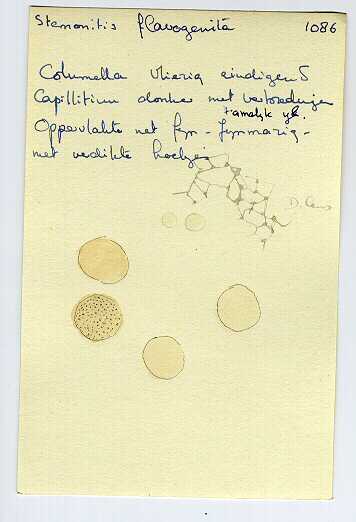 Stemonitis flavogenita 1086
Columella vliezig eindigend
Capillitium donker met verbredingen
tamelijk yl.
Oppervlakte net fyn - fynmazig -
met verdikte hoekjes